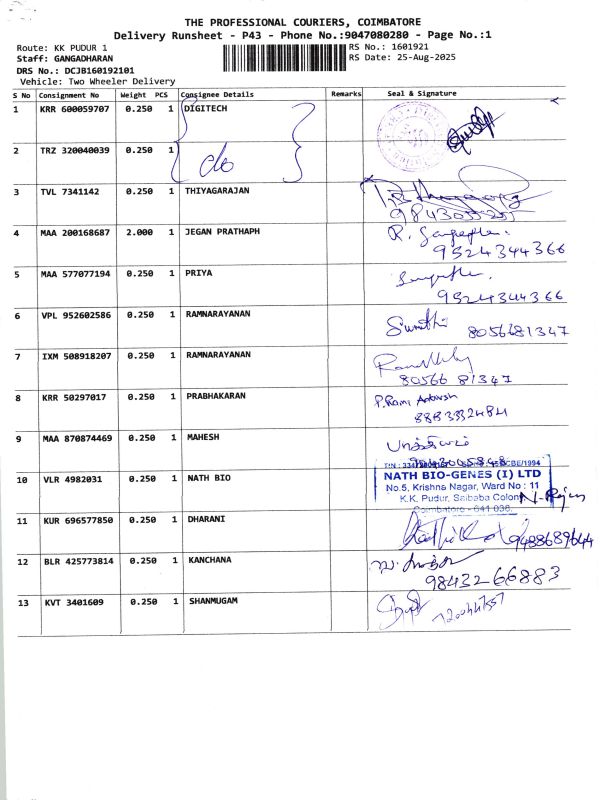 THE PROFESSIONAL COURIERS, COIMBATORE
Delivery Runsheet - P43 - Phone No.:9047080280 - Page No.:1
Route: KK PUDUR 1 RS No.: 1601921
Staff: GANGADHARAN RS Date: 25-Aug-2025
DRS No.: DCJB160192101
Vehicle: Two Wheeler Delivery
S No Consignment No Weight PCS Consignee Details Remarks Seal & Signature
1 KRR 600059707 0.250 1 DIGITECH
2 TRZ 320040039 0.250 1
3 TVL 7341142 0.250 1 THIYAGARAJAN
4 MAA 200168687 2.000 1 JEGAN PRATHAPH R.
9524344366
5 MAA 577077194 0.250 1 PRIYA
9524344366
6 VPL 952602586 0.250 1 RAMNARAYANAN Sumathi 8056681347
7 IXM 508918207 0.250 1 RAMNARAYANAN
80566 81347
8 KRR 50297017 0.250 1 PRABHAKARAN P. Ram
8883332484
9 MAA 870874469 0.250 1 MAHESH
10 VLR 4982031 0.250 1 NATH BIO
NATH BIO-GENES (I) LTD
No.5, Krishna Nagar, Ward No : 11
K.K. Pudur, Saibaba Colony
Coimbatore - 641 038.
11 KUR 696577850 0.250 1 DHARANI
9488689644
12 BLR 425773814 0.250 1 KANCHANA
98432 66883
13 KVT 3401609 0.250 1 SHANMUGAM